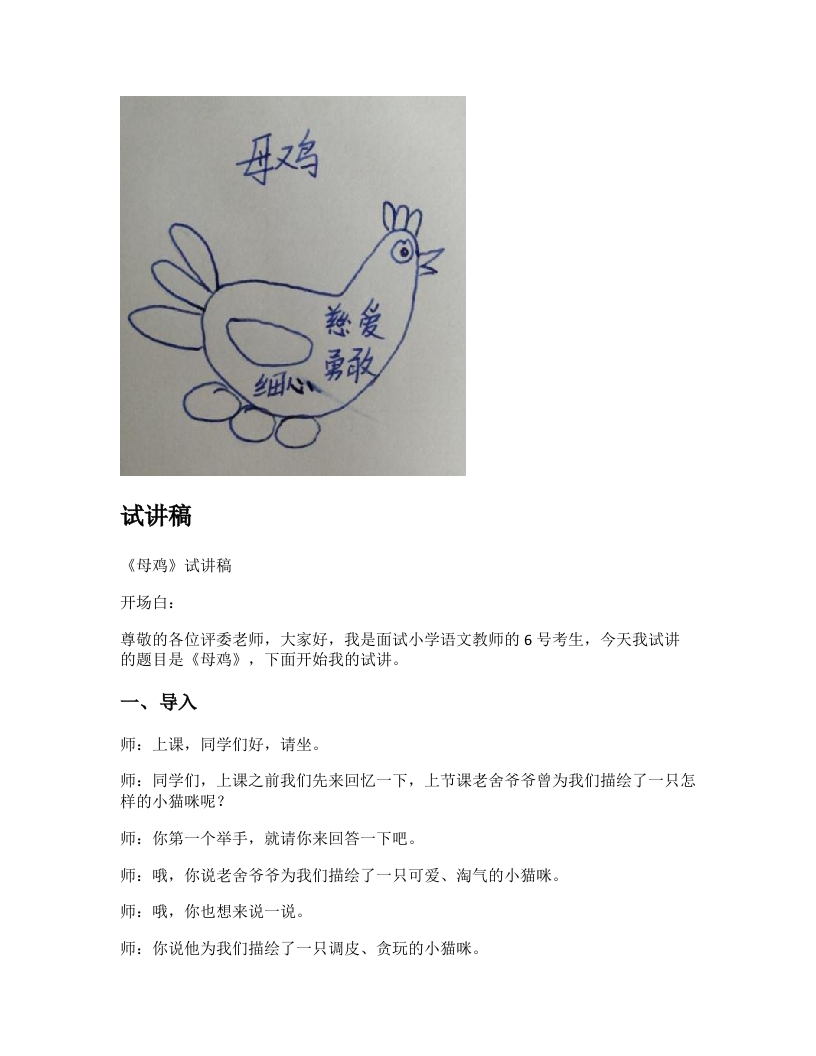 母鸡
慈爱
勇敢
细心
试讲稿
《母鸡》试讲稿
开场白：
尊敬的各位评委老师，大家好，我是面试小学语文教师的 6 号考生，今天我试讲
的题目是《母鸡》，下面开始我的试讲。
一、导入
师：上课，同学们好，请坐。
师：同学们，上课之前我们先来回忆一下，上节课老舍爷爷曾为我们描绘了一只怎
样的小猫咪呢？
师：你第一个举手，就请你来回答一下吧。
师：哦，你说老舍爷爷为我们描绘了一只可爱、淘气的小猫咪。
师：哦，你也想来说一说。
师：你说他为我们描绘了一只调皮、贪玩的小猫咪。